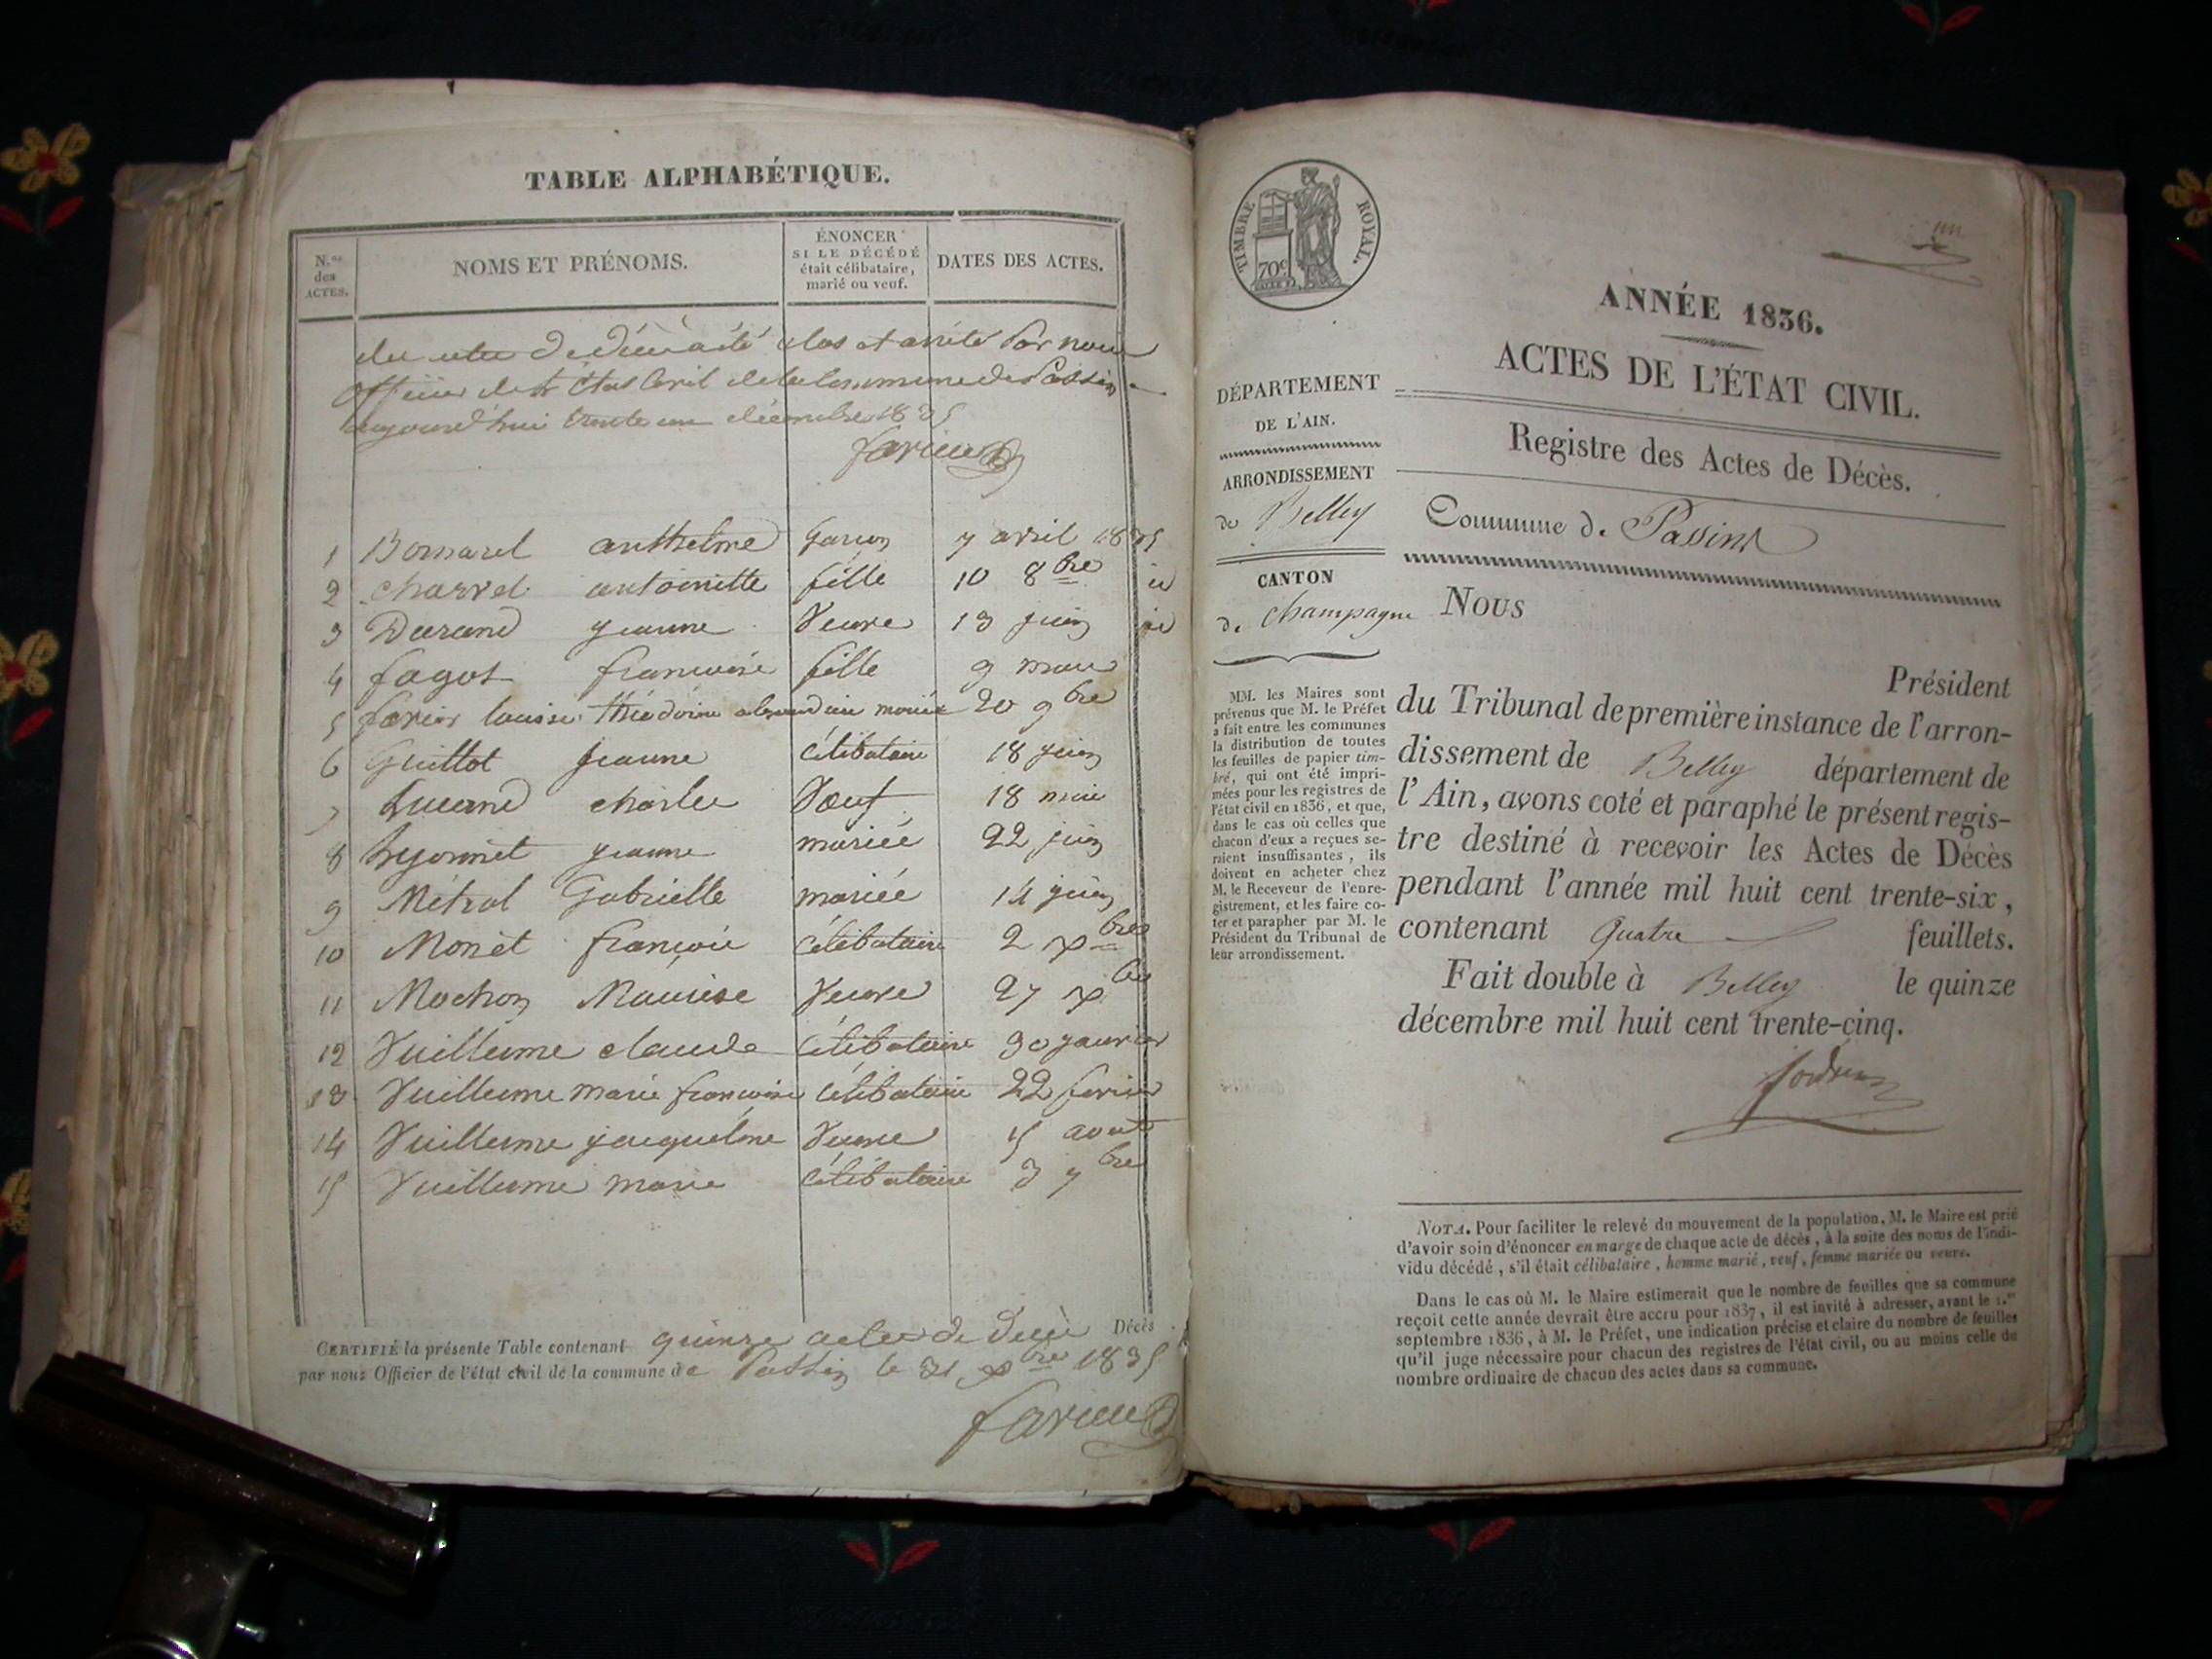 TABLE ALPHABÉTIQUE.
N.os des ACTES.
NOMS ET PRÉNOMS.
ÉNONCER SI LE DÉCÉDÉ était célibataire, marié ou veuf.
DATES DES ACTES.
clos et arrété Par nous
officier de l'état Civil de la Commune de Passin
aujourd'hui trente un décembre 1835
favier
1 Bornarel anthelme Garçon 7 avril 1835
2 Charvet antoinette fille 10 8bre id
3 Durand jeanne Veuve 13 juin id
4 fagot francoise fille 9 mars
5 favier louise théodorine mariée 20 9bre
6 Guillot jeanne Célibataire 18 juin
7 Lucand charles Veuf 18 mai
8 Lyonnet jeanne mariée 22 juin
9 Métral Gabrielle mariée 14 juin
10 Monet françois Célibataire 2 Xbre
11 Mochon Maurise Veuve 27 Xbre
12 Vuillerme claude Célibataire 30 janvier
13 Vuillerme marie francoise Célibataire 22 fevrier
14 Vuillerme jacqueline Veuve 15 aout
15 Vuillerme marie Célibataire 3 7bre
CERTIFIÉ la présente Table contenant quinze actes de décès Décès
par nous Officier de l'état civil de la commune de Passin le 31 Xbre 1835
favier
TIMBRE ROYAL.
70c
ANNÉE 1836.
ACTES DE L'ÉTAT CIVIL.
Registre des Actes de Décès.
Commune de Passins
DÉPARTEMENT
DE L'AIN.
ARRONDISSEMENT
de Belley
CANTON
de Champagne
MM. les Maires sont
prévenus que M. le Préfet
a fait entre les communes
la distribution de toutes
les feuilles de papier tim-
bré, qui ont été impri-
mées pour les registres de
l'état civil en 1836, et que,
dans le cas où celles que
chacun d'eux a reçues se-
raient insuffisantes, ils
doivent en acheter chez
M. le Receveur de l'enre-
gistrement, et les faire co-
ter et parapher par M. le
Président du Tribunal de
leur arrondissement.
Nous
Président
du Tribunal de première instance de l'arron-
dissement de Belley département de
l'Ain, avons coté et paraphé le présent regis-
tre destiné à recevoir les Actes de Décès
pendant l'année mil huit cent trente-six,
contenant Quatre feuillets.
Fait double à Belley le quinze
décembre mil huit cent trente-cinq.
NOTA. Pour faciliter le relevé du mouvement de la population, M. le Maire est prié
d'avoir soin d'énoncer en marge de chaque acte de décès, à la suite des noms de l'indi-
vidu décédé, s'il était célibataire, homme marié, veuf, femme mariée ou veuve.
Dans le cas où M. le Maire estimerait que le nombre de feuilles que sa commune
reçoit cette année devrait être accru pour 1837, il est invité à adresser, avant le 1.er
septembre 1836, à M. le Préfet, une indication précise et claire du nombre de feuilles
qu'il juge nécessaire pour chacun des registres de l'état civil, ou au moins celle du
nombre ordinaire de chacun des actes dans sa commune.